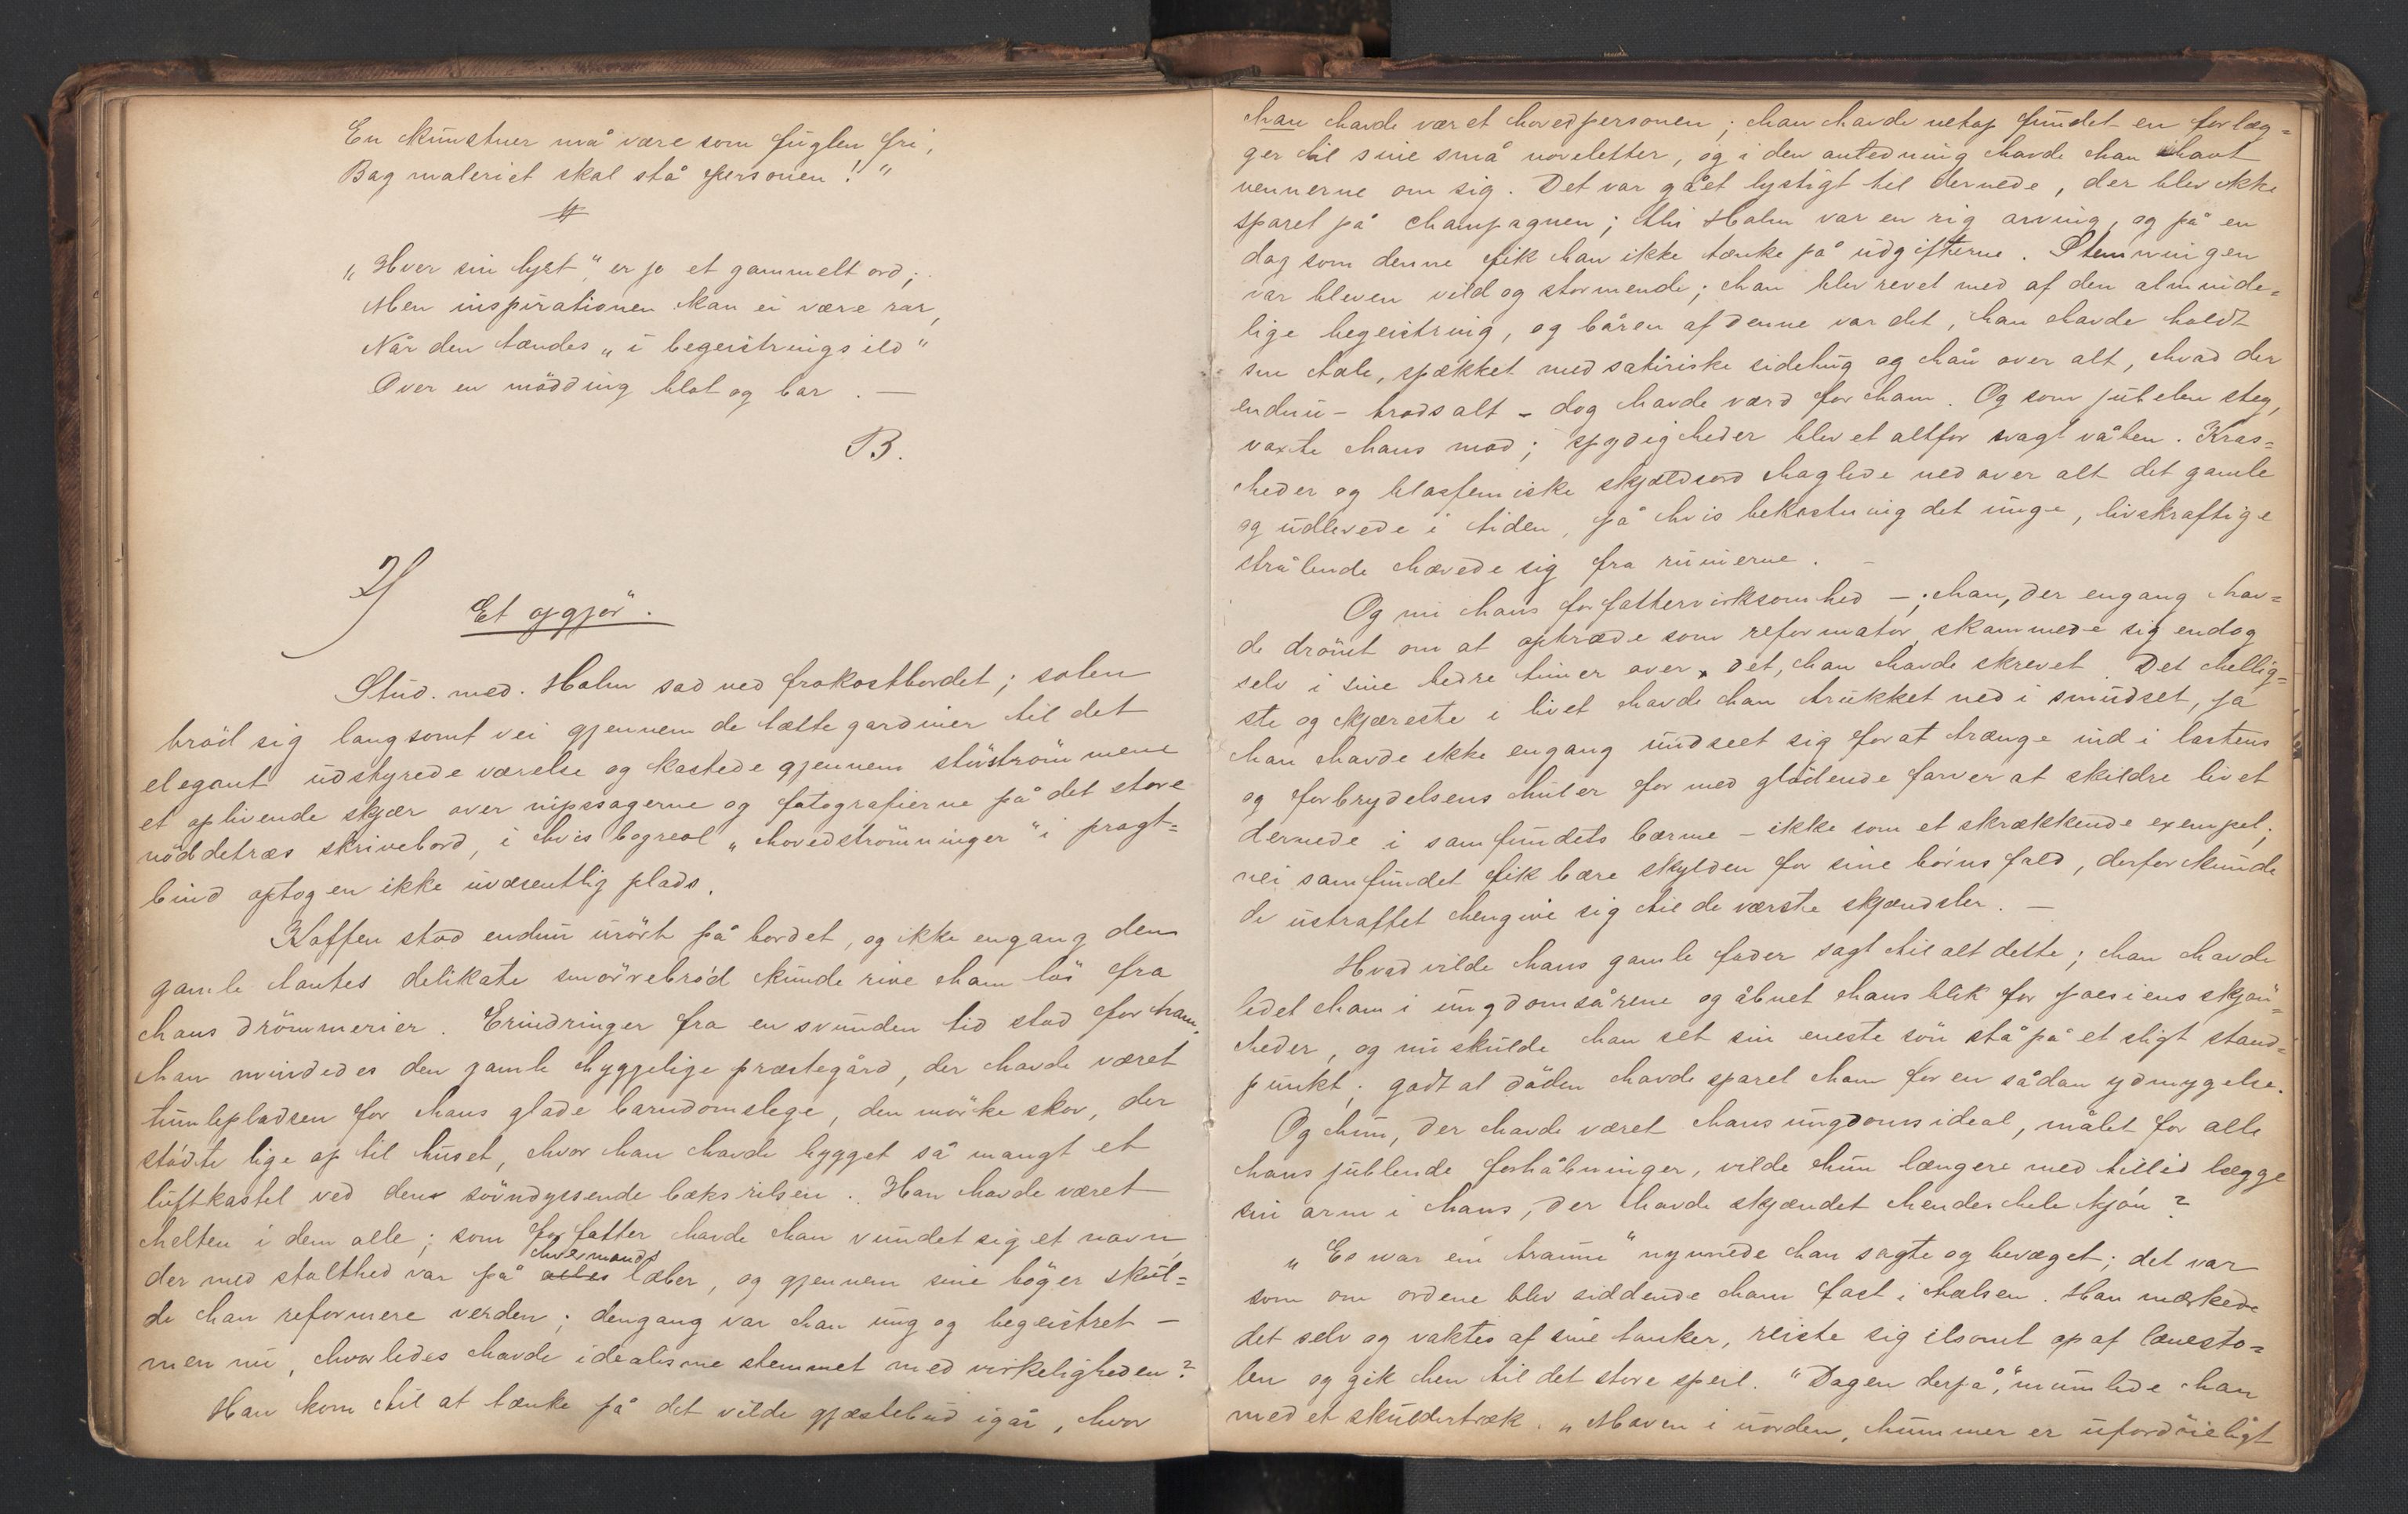 En kunstner må være som fuglen fri,
Bag maleriet skal stå personen!"
#
„Hver sin lyst," er jo et gammelt ord;
Men inspirationen kan ei være rar,
Når den tændes „i begeistrings ild"
Over en mödding blot og bar. —
B.
2)
Et opgjör.
Stud. med. Holm sad ved frokostbordet; solen
bröd sig langsomt vei gjennem de tætte gardiner til det
elegant udstyrede værelse og kastede gjennem stövströmmene
et oplivende skjær over nipssagerne og fotografierne på det store
nöddetræs skrivebord, i hvis bogreol „hovedströmninger" i pragt=
bind optog en ikke uvæsentlig plads.
Kaffen stod endnu urört på bordet, og ikke engang den
gamle tantes delikate smörrebröd kunde rive ham lös fra
hans drömmerier. Erindringer fra en svunden tid stod for ham,
han mindedes den gamle hyggelige præstegård, der havde været
tumlepladsen for hans glade barndomslege, den mörke skov, der
stödte lige op til huset, hvor han havde bygget så mangt et
luftkastel ved den sövndyssende bæks rislen. Han havde været
helten i dem alle; som forfatter havde han vundet sig et navn,
der med stolthed var på alles hvermands læber, og gjennem sine böger skul=
de han reformere verden; dengang var han ung og begeistret —
men nu, hvorledes havde idealisme stemmet med virkeligheden?
Han kom til at tænke på det vilde gjæstebud igår, hvor
han havde været hovedpersonen; han havde netop fundet en forlæg=
ger til sine små noveletter, og i den anledning havde han havt
vennerne om sig. Det var gået lystigt til dernede, der blev ikke
sparet på champagnen; thi Holm var en rig arving, og på en
dag som denne fik han ikke tænke på udgifterne. Stemningen
var bleven vild og stormende; han blev revet med af den alminde=
lige begeistring, og båren af denne var det, han havde holdt
sin tale, spækket med satiriske sidehug og hån over alt, hvad der
endnu – trods alt – dog havde værd for ham. Og som jubelen steg,
voxte hans mod; spydigheder blev et altfor svagt våben. Kras=
heder og blasfemiske skjældsord haglede ned over alt det gamle
og udlevede i tiden, på hvis bekostning det unge, livskraftige
strålende hævede sig fra ruinerne. –
Og nu hans forfattervirksomhed —; han, der engang hav=
de drömt om at optræde som reformator, skammede sig endog
selv i sine bedre timer over det, han havde skrevet. Det hellig=
ste og kjæreste i livet havde han trukket ned i smudset, ja
han havde ikke engang undseet sig for at trænge ind i lastens
og forbrydelsens huler for med glödende farver at skildre livet
dernede i samfundets bærme – ikke som et skrækkende exempel;
nei samfundet fik bære skylden for sine börns fald, derfor kunde
de ustraffet hengive sig til de værste skjændsler. —
Hvad vilde hans gamle fader sagt til alt dette; han havde
ledet ham i ungdomsårene og åbnet hans blik for poesiens skjön=
heder, og nu skulde han set sin eneste sön stå på et sligt stand=
punkt; godt at döden havde sparet ham for en sådan ydmygelse.
Og hun, der havde været hans ungdoms ideal, målet for alle
hans jublende forhåbninger, vilde hun længere med tillid lægge
sin arm i hans, der havde skjændet hendes hele kjön?
„Es war ein traum" nynnede han sagte og bevæget; det var
som om ordene blev siddende ham fast i halsen. Han mærkede
det selv og vaktes af sine tanker, reiste sig ilsomt op af lænesto=
len og gik hen til det store speil. "Dagen derpå," mumlede han
med et skuldertræk. „Maven i uorden, hummer er ufordöieligt